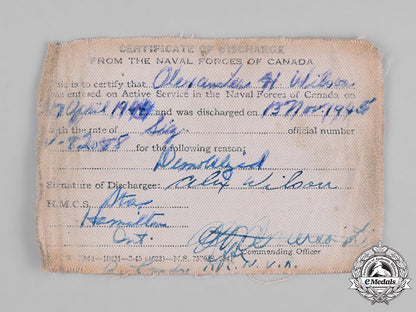 CERTIFICATE OF DISCHARGE
FROM THE NAVAL FORCES OF CANADA
This is to certify that Alexander H. Wilson
was entered on Active Service in the Naval Forces of Canada on
April 1944 and was discharged on 13 Nov 1945
with the rate of Sig. official number
for the following reason:
Demobilized
Signature of Discharge: Alex Wilson
H.M.C.S. Star
Hamilton
Ont.
Commanding Officer
R.C.N.V.R.